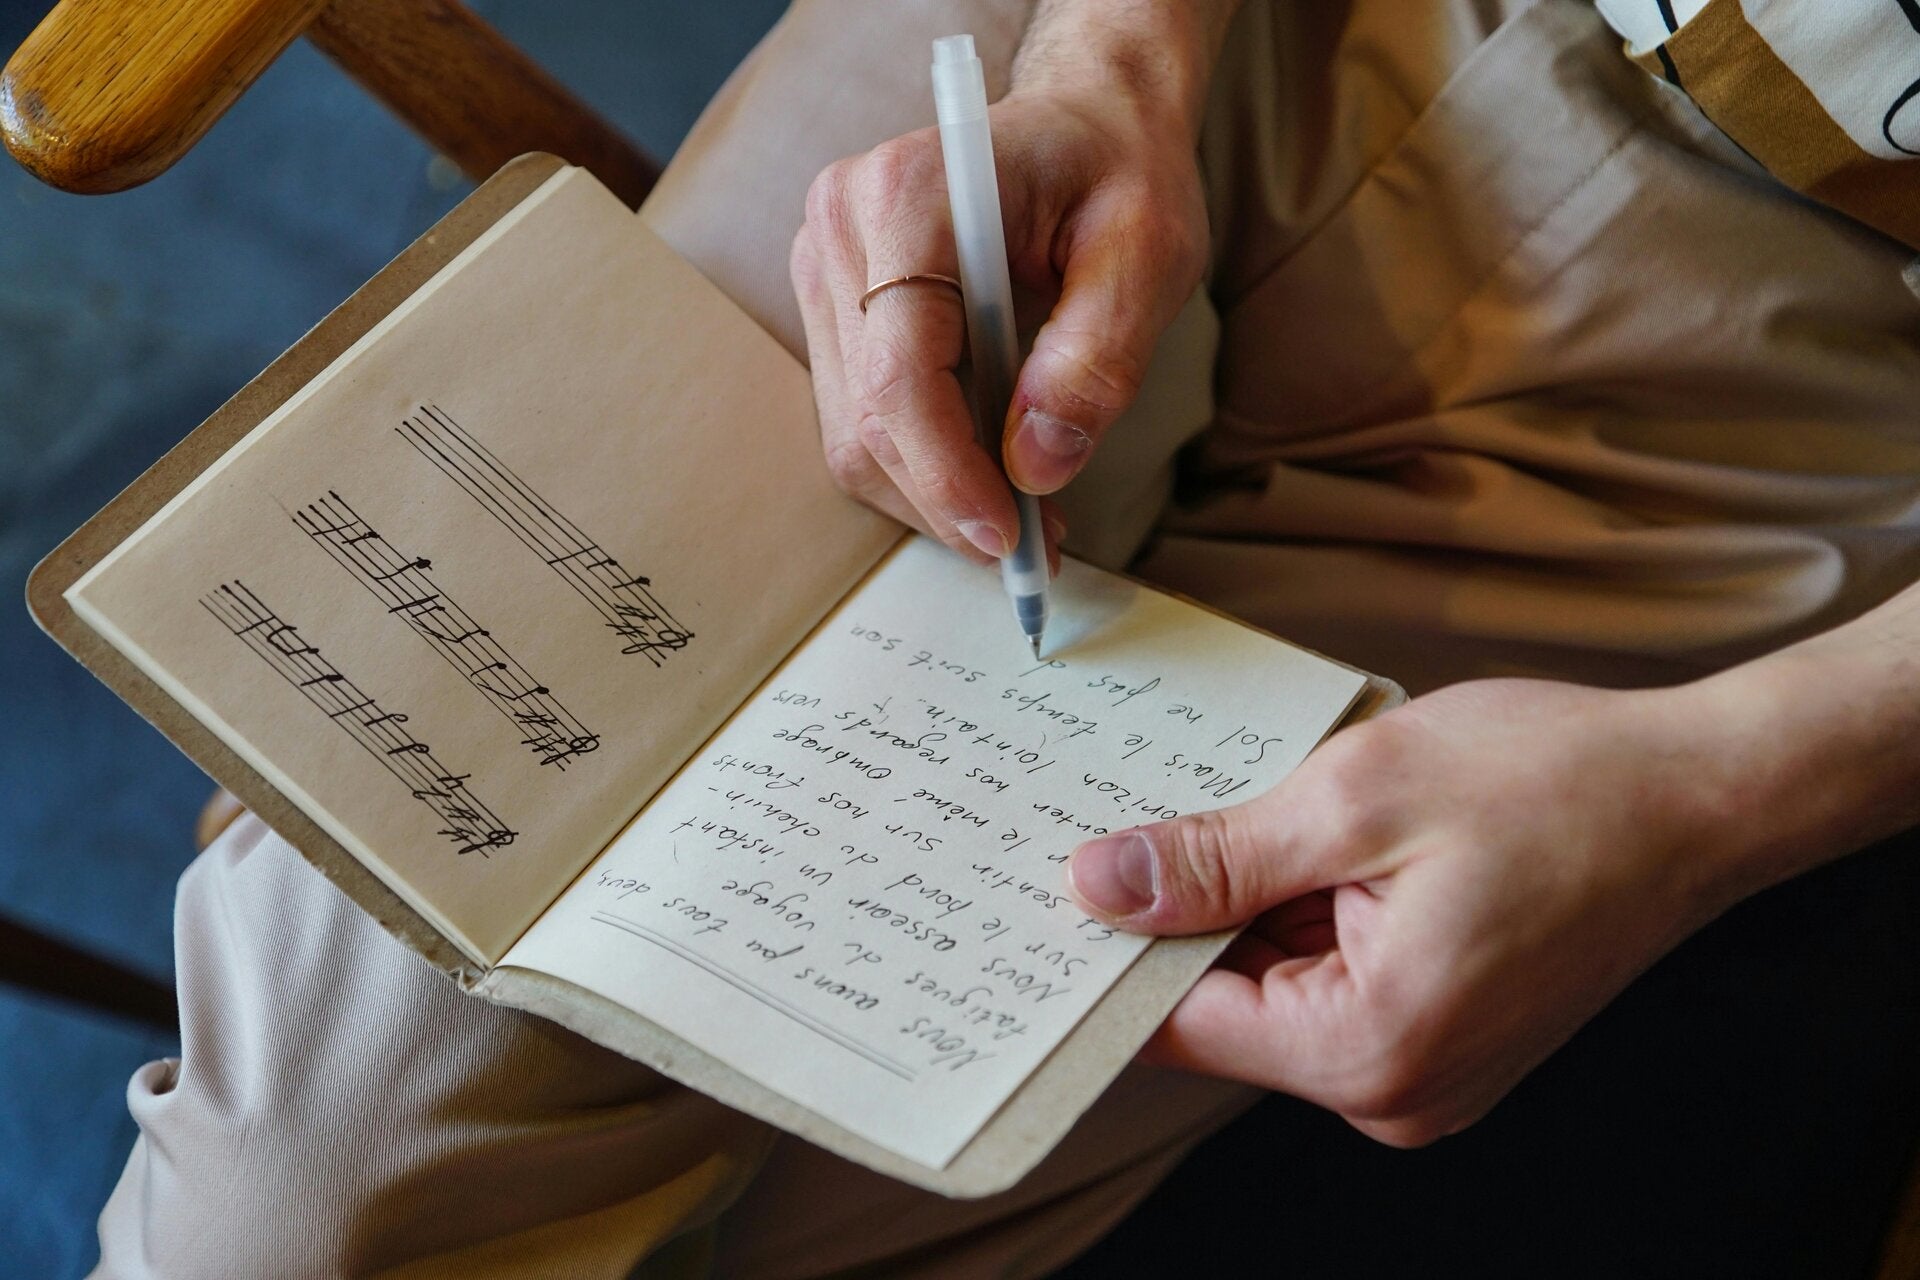 Nous avons pu tous deux,
fatigues du voyage
Nous asseoir un instant
sur le bord du chemin-
Et sentir sur nos fronts
le même ombrage
nos regards vers
lointain..
Mais le temps suit son
Sol ne pas d